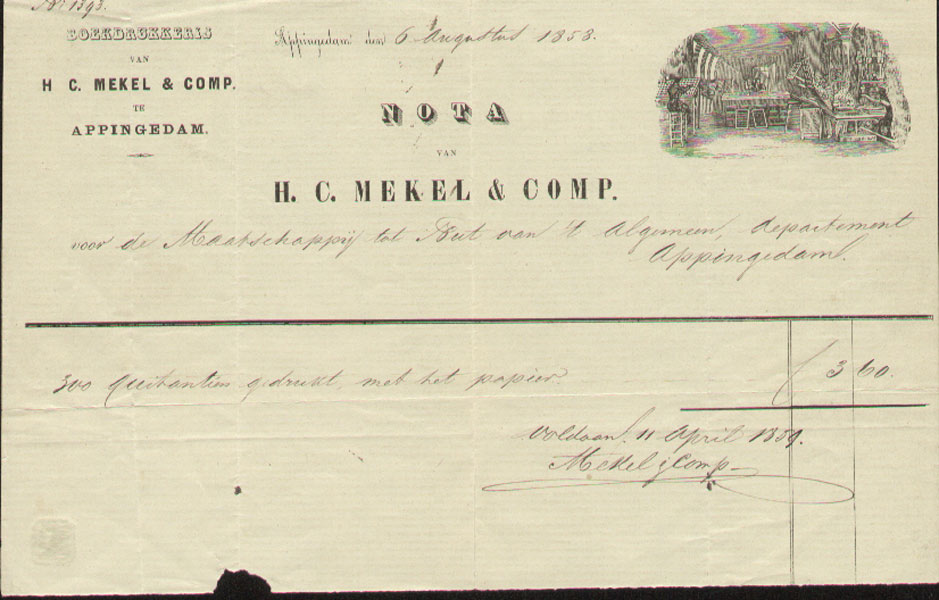 No 1393.
BOEKDRUKKERIJ
VAN
H C. MEKEL & COMP.
TE
APPINGEDAM.
Appingedam den 6 Augustus 1858.
NOTA
VAN
H. C. MEKEL & COMP.
voor de Maatschappij tot Nut van 't Algemeen, departement
Appingedam.
300 quitantien gedrukt, met het papier. f 3 60.
Voldaan. 11 April 1859.
Mekel & Comp